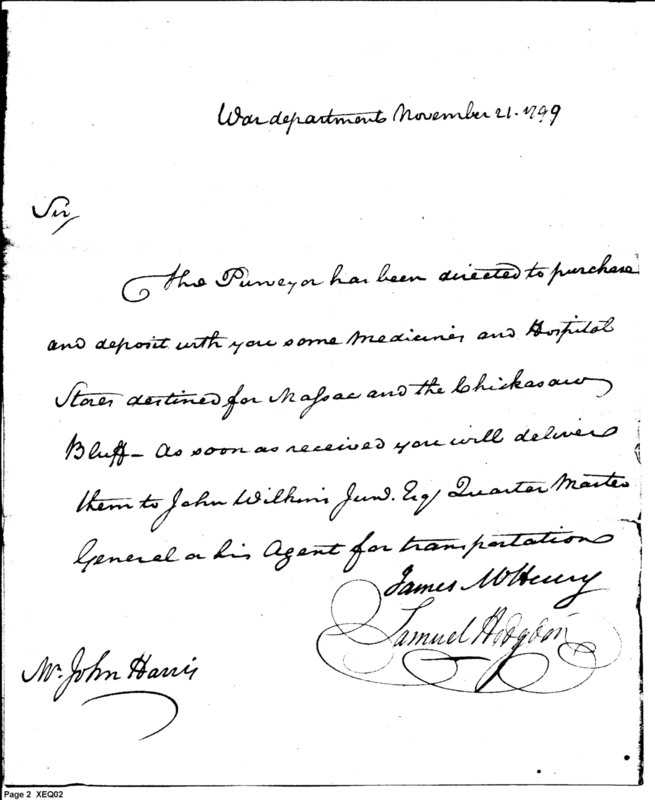 War department November 21. 1799
Sir,
The Purveyor has been directed to purchase
and deposit with you some Medicines and Hospital
Stores destined for Massac and the Chickasaw
Bluff - As soon as received you will deliver
them to John Wilkins Junr. Esq Quarter Master
General or his Agent for transportation
James McHenry
Samuel Hodgdon
Mr. John Harris
Page 2 XEQ02